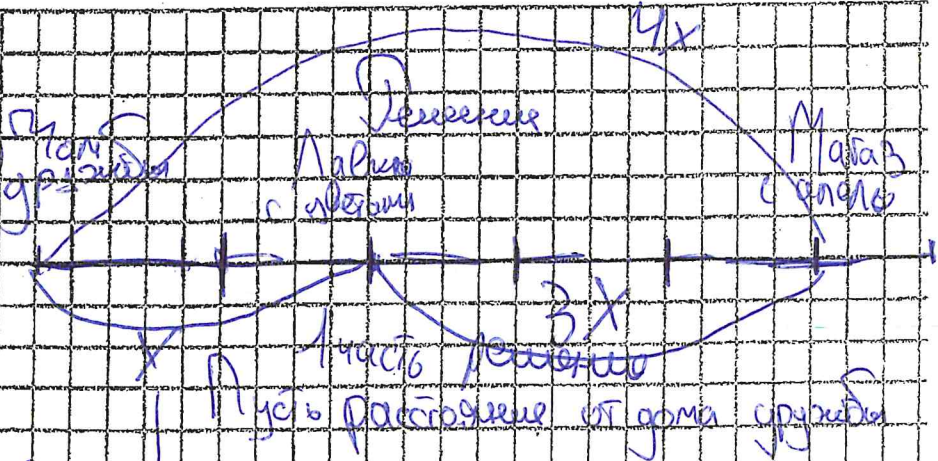 4x
Решение
Дом дружбы
Лавка с цветами
Магаз с
X
3X
1 часть решению
Пусть расстояние от дома дружбы